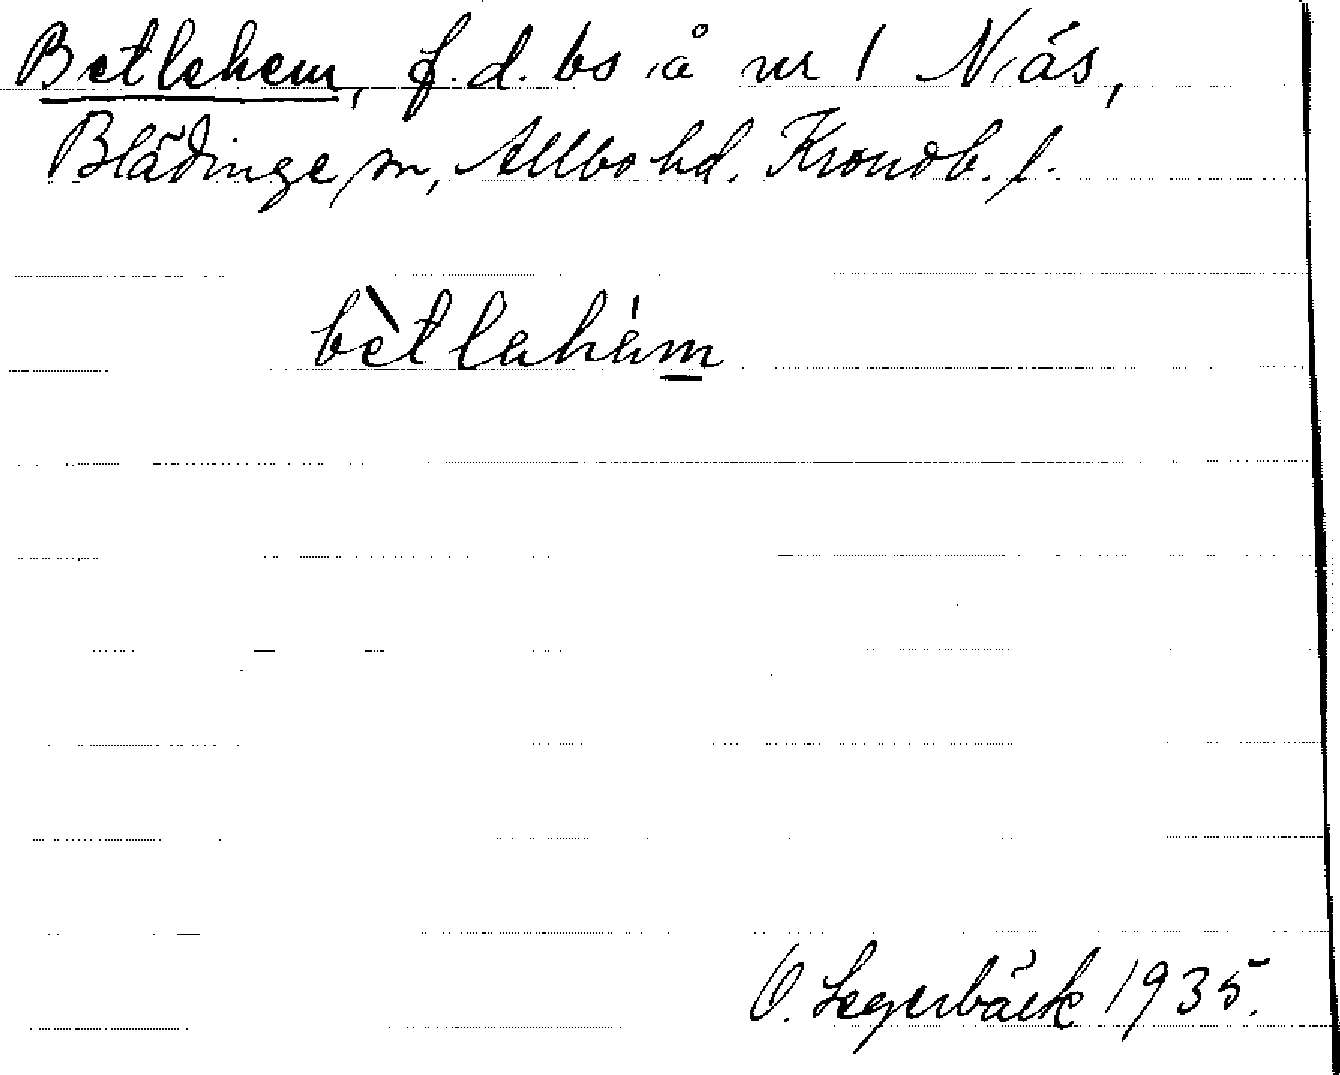 Betlehem, f.d. bs å nr 1 Näs,
Blädinge sn, Allbo hd. Kronob. l.
bètlahàm
O. Segerbäck 1935.